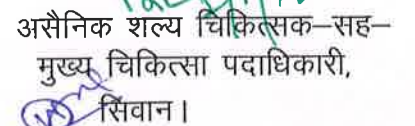 असैनिक शल्य चिकित्सक–सह–
मुख्य चिकित्सा पदाधिकारी,
सिवान।